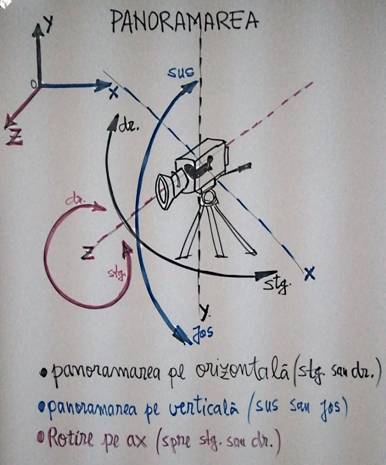 PANORAMAREA
Y
O
X
Z
sus
dr.
dr.
Z
stg.
stg.
X
Y
jos
• panoramarea pe orizontală (stg. sau dr.)
• panoramarea pe verticală (sus sau jos)
• Rotire pe ax (spre stg. sau dr.)